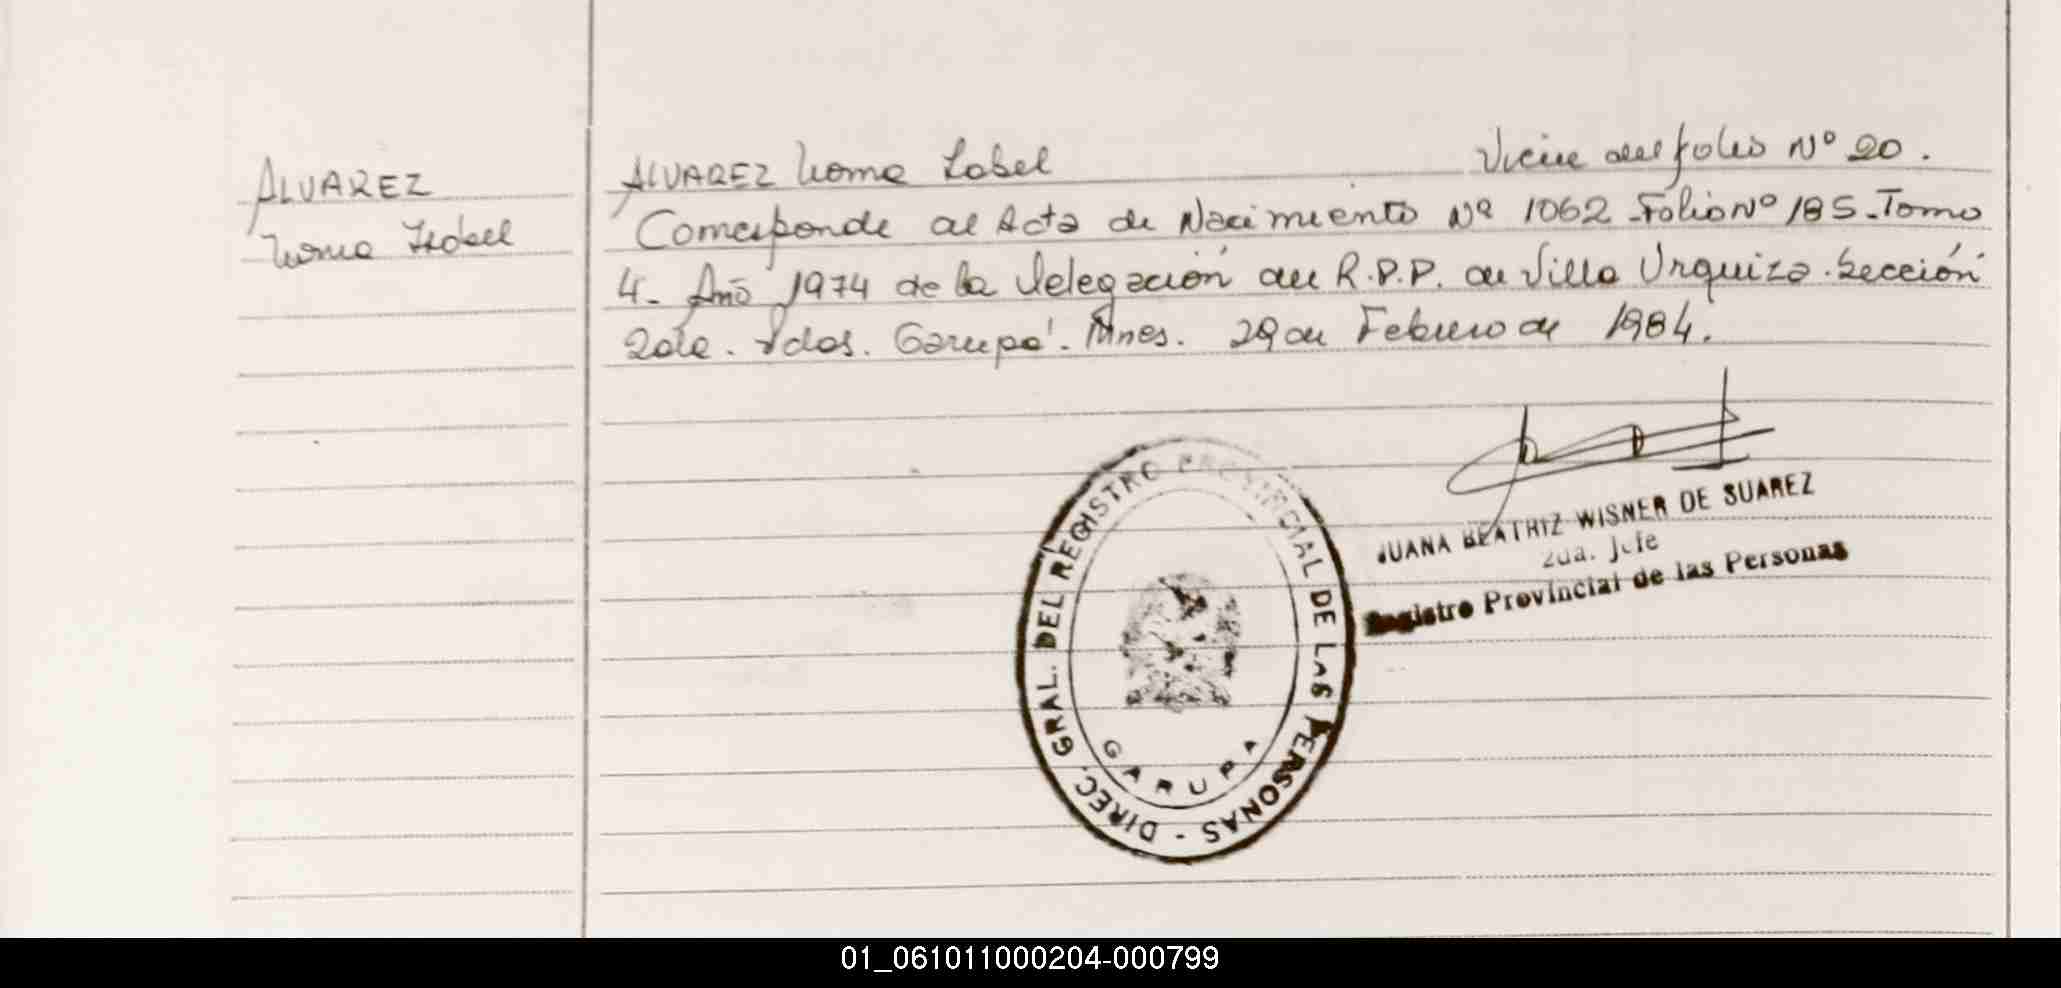 ALVAREZ
Norma Isabel
ALVAREZ Norma Isabel
Viene del folio Nº 20.
Corresponde al Acta de Nacimiento Nº 1062 Folio Nº 185. Tomo
4. Año 1974 de la Delegación del R.P.P. de Villa Urquiza. Sección
2da. Pdas. Garupá. Mnes. 29 de Febrero de 1984.
JUANA BEATRIZ WISNER DE SUAREZ
2da. Jefe
Registro Provincial de las Personas
DIREC. GRAL. DEL REGISTRO PROVINCIAL DE LAS PERSONAS -
GARUPA
01_061011000204-000799